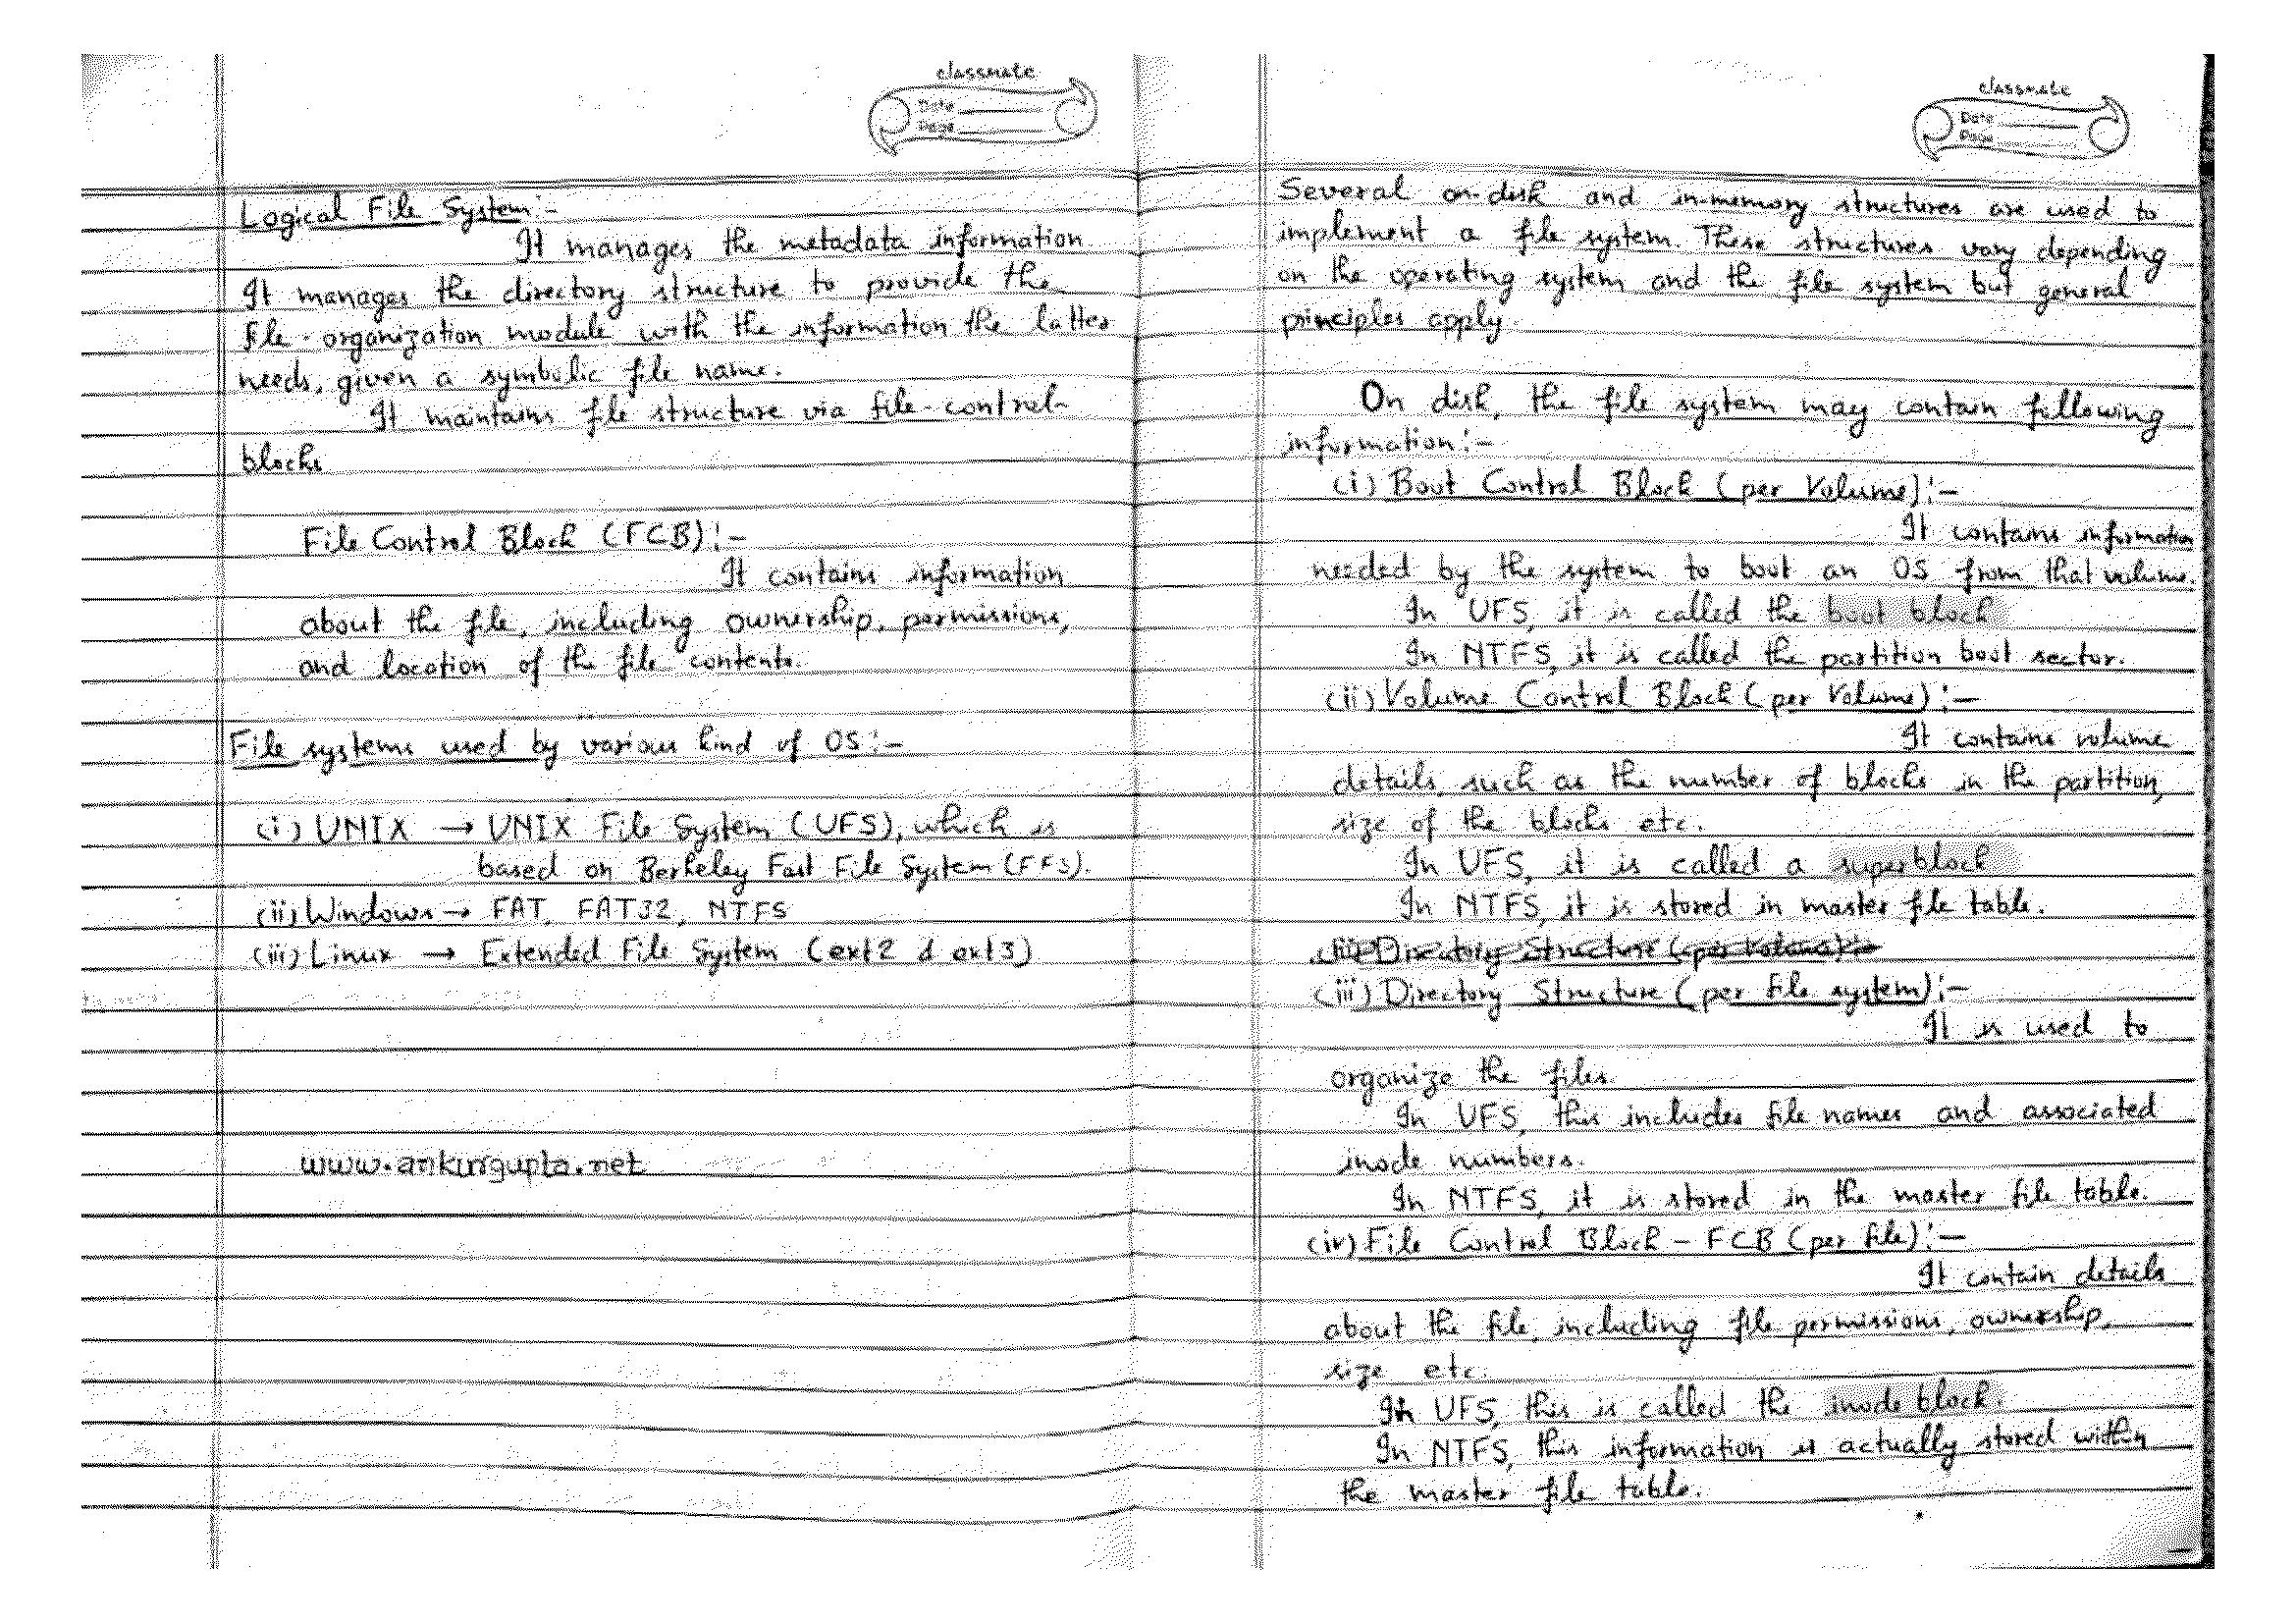 classmate
Date
Page
Logical File System:-
It manages the metadata information.
It manages the directory structure to provide the
file-organization module with the information the latter
needs, given a symbolic file name.
It maintains file structure via file-control-
blocks
File Control Block (FCB):-
It contains information
about the file, including ownership, permissions,
and location of the file contents.
File systems used by various kind of OS:-
(i) UNIX → UNIX File System (UFS), which is
based on Berkeley Fast File System (FFS).
(ii) Windows → FAT, FAT32, NTFS
(iii) Linux → Extended File System (ext2 & ext3)
www.ankurgupta.net
classmate
Date
Page
Several on-disk and in-memory structures are used to
implement a file system. These structures vary depending
on the operating system and the file system but general
principles apply.
On disk, the file system may contain following
information:-
(i) Boot Control Block (per Volume):-
It contains information
needed by the system to boot an OS from that volume.
In UFS, it is called the boot block
In NTFS, it is called the partition boot sector.
(ii) Volume Control Block (per Volume):-
It contains volume
details, such as the number of blocks in the partition,
size of the blocks etc.
In UFS, it is called a superblock
In NTFS, it is stored in master file table.
(iii) Directory Structure (per volume):-
(iii) Directory Structure (per file system):-
It is used to
organize the files.
In UFS, this includes file names and associated
inode numbers.
In NTFS, it is stored in the master file table.
(iv) File Control Block - FCB (per file):-
It contain details
about the file, including file permissions, ownership,
size etc.
In UFS, this is called the inode block.
In NTFS, this information is actually stored within
the master file table.